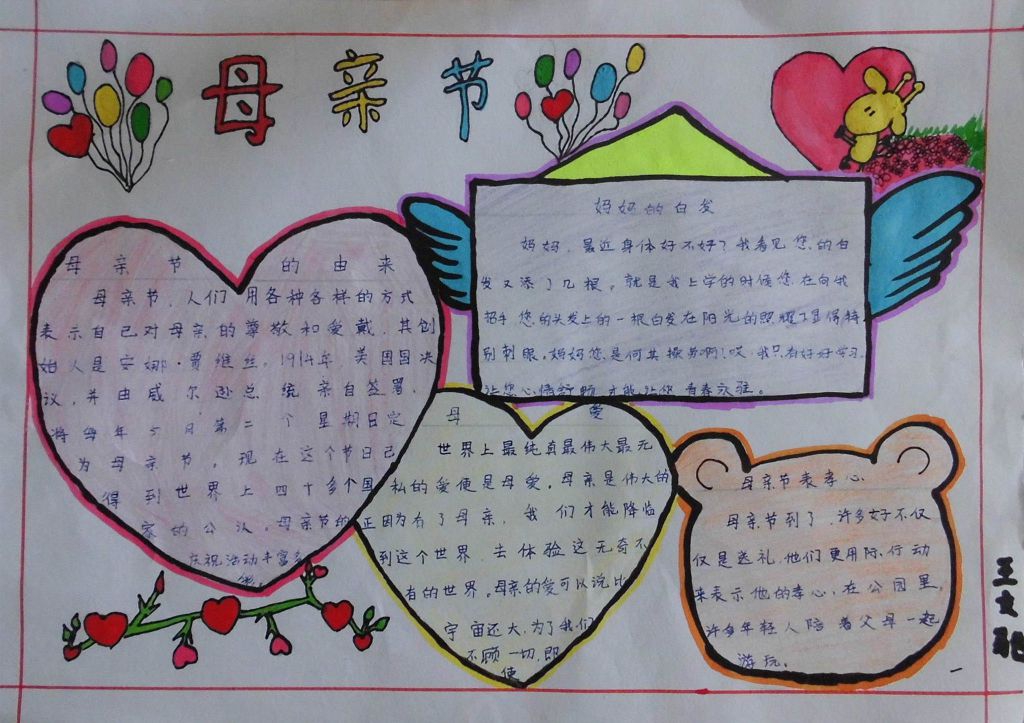 母亲节
母亲节的由来
母亲节，人们用各种各样的方式
表示自己对母亲的尊敬和爱戴，其创
始人是安娜·贾维丝，1914年，美国国决
议，并由威尔逊总统亲自签署，
将每年5月第二个星期日定
为母亲节。现在这个节日已
得到世界上四十多个国
家的公认。母亲节的
庆祝活动丰富多
妈妈的白发
妈妈，最近身体好不好？我看见您的白
发又添了几根。就是我上学的时候您在向我
招手，您的头发上的一根白发在阳光的照耀下显得特
别刺眼。妈妈您是何其操劳啊！哎，我只有好好学习，
让您心情舒畅，才能让你青春永驻。
母爱
世界上最纯真最伟大最无
私的爱便是母爱。母亲是伟大的
正因为有了母亲，我们才能降临
到这个世界，去体验这无奇不
有的世界。母亲的爱可以说比
宇宙还大，为了我们
不顾一切，即
使
母亲节表孝心
母亲节到了，许多好不仅
仅是送礼，他们更用际行动
来表示他的孝心，在公园里，
许多年轻人陪着父母一起
游玩。
王文驰